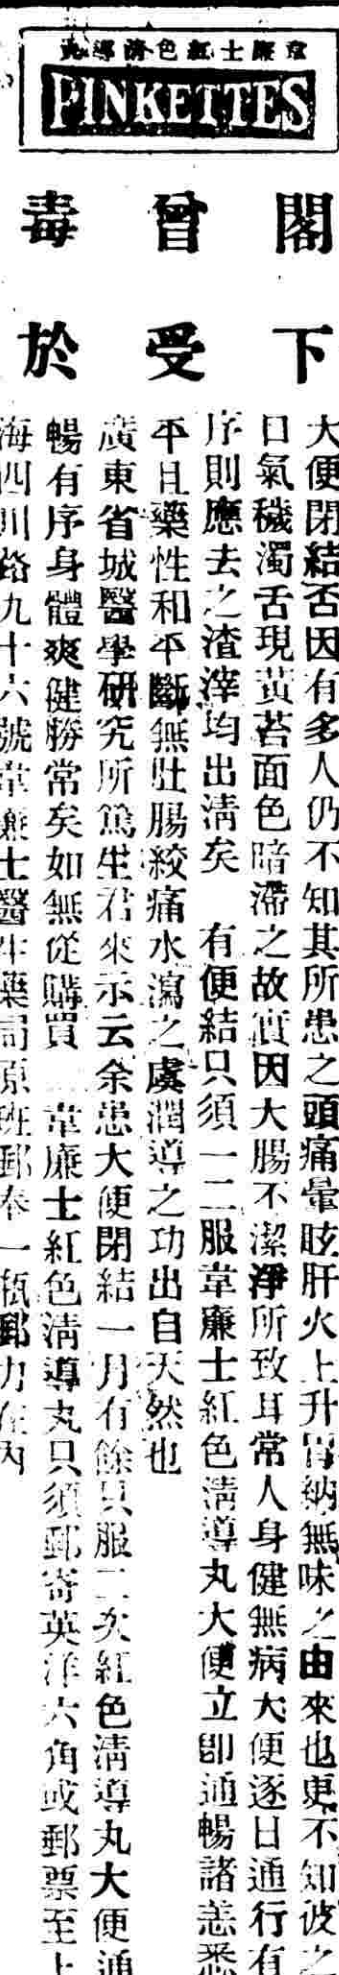 韋廉士紅色清導丸
PINKETTES
閣下
曾受
毒於
大便閉結否因有多人仍不知其所患之頭痛暈眩肝火上升胃納無味之由來也更不知彼之
口氣穢濁舌現黃苔面色暗滯之故實因大腸不潔淨所致耳常人身健無病大便逐日通行有
序則應去之渣滓均出清矣 有便結只須一二服韋廉士紅色清導丸大便立卽通暢諸恙悉
平且藥性和平斷無肚腸絞痛水瀉之虞潤導之功出自天然也
廣東省城醫學研究所篤生君來示云余患大便閉結一月有餘只服二次紅色淸導丸大便通
暢有序身體爽健勝常矣如無從購買 韋廉士紅色淸導丸只須郵寄英洋六角或郵票至上
海四川路九十六號韋廉士醫生藥局原班郵奉一瓶郵力在內